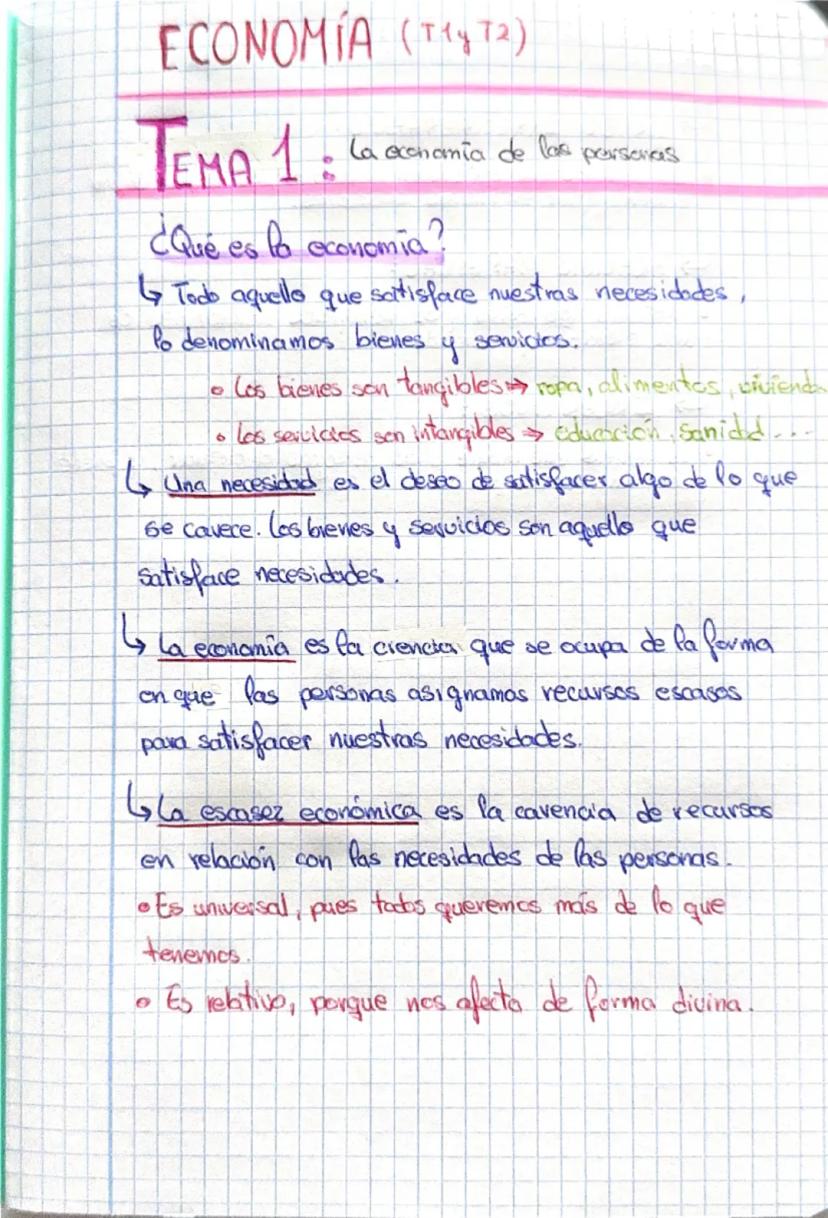 ECONOMÍA (T1 y T2)
TEMA 1: La economía de las personas
¿Qué es la economía?
↳ Todo aquello que satisface nuestras necesidades,
lo denominamos bienes y servicios.
• Los bienes son tangibles ⇒ ropa, alimentos, vivienda
• Los servicios son intangibles ⇒ educación, sanidad...
↳ Una necesidad es el deseo de satisfacer algo de lo que
se carece. Los bienes y servicios son aquello que
satisface necesidades.
↳ La economía es la ciencia que se ocupa de la forma
en que las personas asignamos recursos escasos
para satisfacer nuestras necesidades.
↳ La escasez económica es la carencia de recursos
en relación con las necesidades de las personas.
• Es universal, pues todos queremos más de lo que
tenemos.
• Es relativo, porque nos afecta de forma divina.